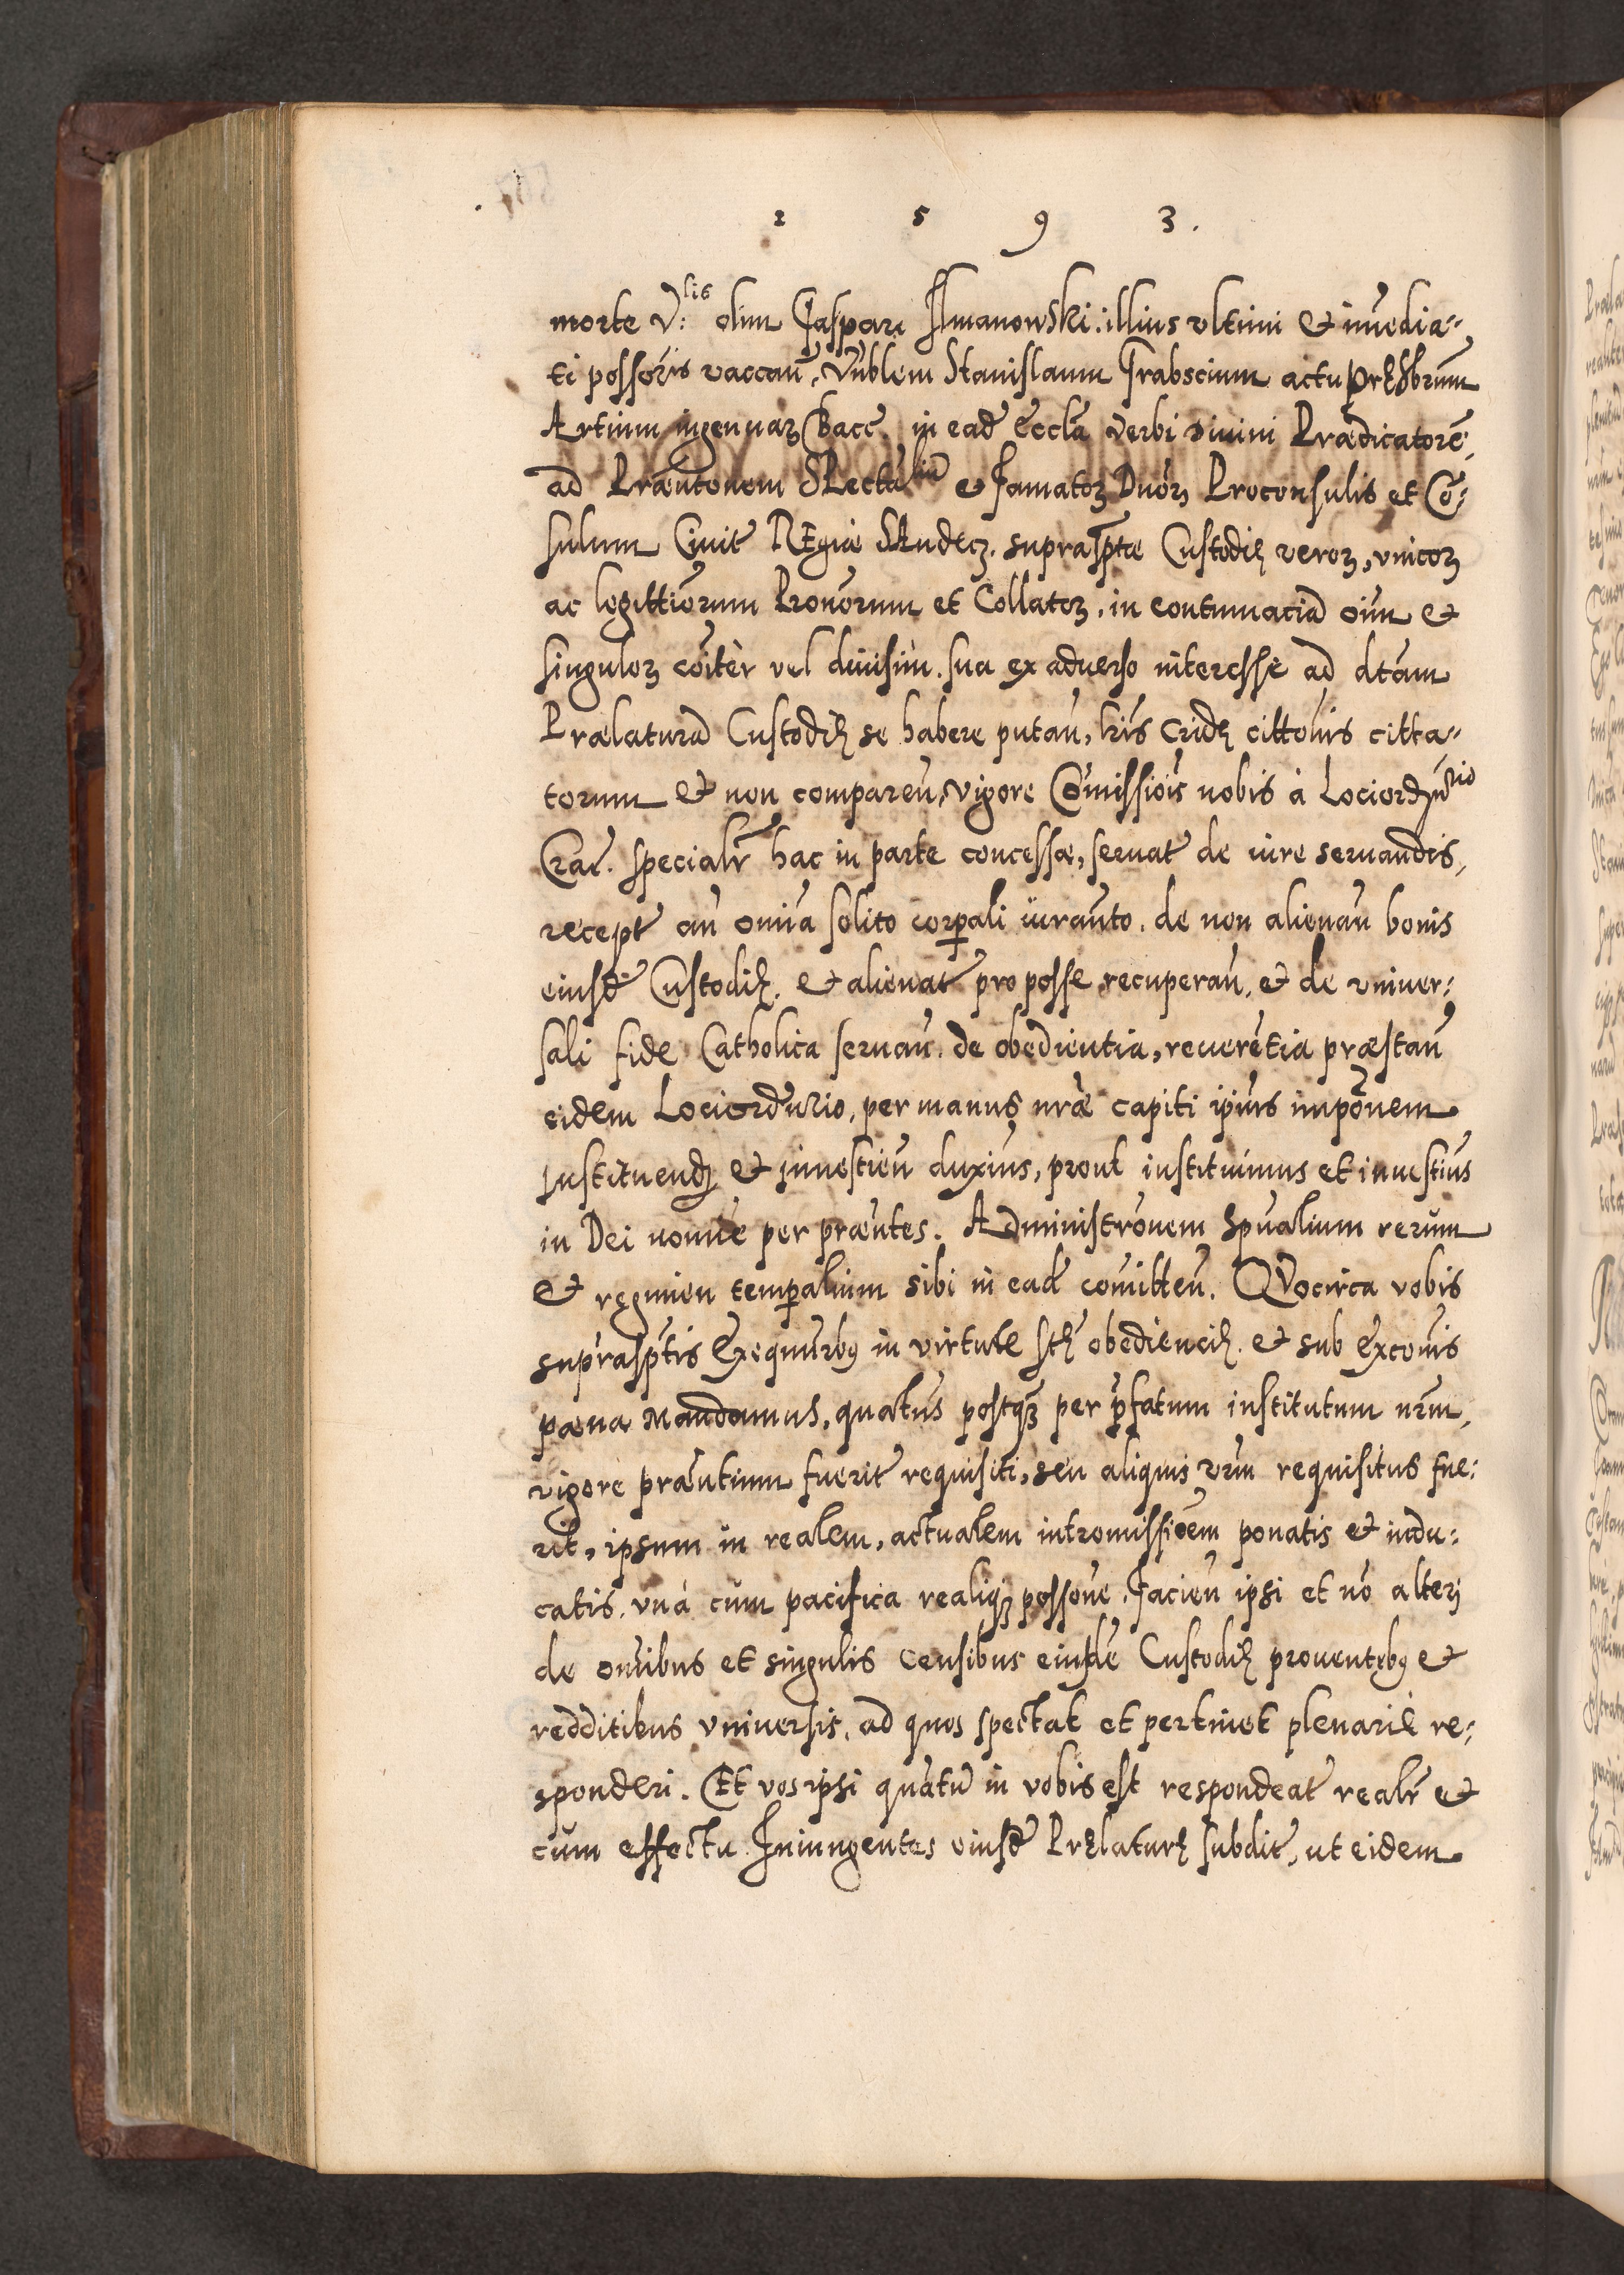 1 5 9 3.
morte V:lis olim Gaspari Ilmanowski. illius vltimi & im̄edia-
ti possor̃is vaccan̄, Vn̄blem Stanislaum Grabscium actu pręsbr̃um
Artium ingenuaꝝ Bacc. in ead̃ Eccl̃a Verbi diuini Prædicatorẽ,
ad Præn̄tonem Spectal̃iũ & Famatoꝝ Dn̄oꝝ Proconsulis et Cõ-
sulum Ciuit̃ REgiæ SAndecꝫ. suprasp̃tæ Custodię veroꝝ, vnicoꝝ
ac legittiõrum Pronõrum et Collatoꝝ, in contumaciã oĩm &
singuloꝝ cõitèr vel diuisim. sua ex aduerso interesse ad dt̃am
Prælaturã Custodię se habere putan̄, lr̃is cridę cittol̃irs citta-
torum & non comparen̄, vigore Com̃issiõis nobis à Lociordin̄rio
Crac̃. specialr̃ hac in parte concessæ, seruat̃ de iure seruandis,
recept̃ an̄ om̃ia solito corꝑali iuram̃to. de non alienan̄ bonis
eiusd̃ Custodię. & alienat̃ pro posse recuperan̄. et de vniuer-
sali fide Catholica seruan̄. de obedientia, reuerẽtia præstan̄
eidem Lociordn̄rio, per manus nr̃æ capiti ipĩus impõnem
Instituendꝫ & inuestien̄ duxim̃us, prout instituimus et inuestim̃us
in Dei nomĩe per præn̄tes. Administrõnem Spũalium rerum
& regimen temꝑalium sibi in ead̃ com̃itten̄. QVocirca vobis
suprasp̃tis Exequũrbꝫ in virtute stę obediencię. et sub Excom̃is
pæna Mandamus, quatñus postqꝫ per p̃fatum institutum nr̃um,
vigore præn̄tium fuerit̃ requisiti, seu aliquis vr̃m requisitus fue-
rit, ipsum in realem, actualem intromissiõem ponatis & indu-
catis. vnà cum pacifica realiqꝫ possõne. Facien̄ ipsi et nõ alteri
de om̃ibus et singulis Censibus eiusdẽ Custodię prouentibꝫ &
redditibus vniuersis, ad quos spectat et pertinet plenariè re-
sponderi. Et vos ipsi quãtũ in vobis est respondeat̃ realr̃ &
cum effectu. Iniungentes eiusd̃ Prælaturę subdit̃, ut eidem